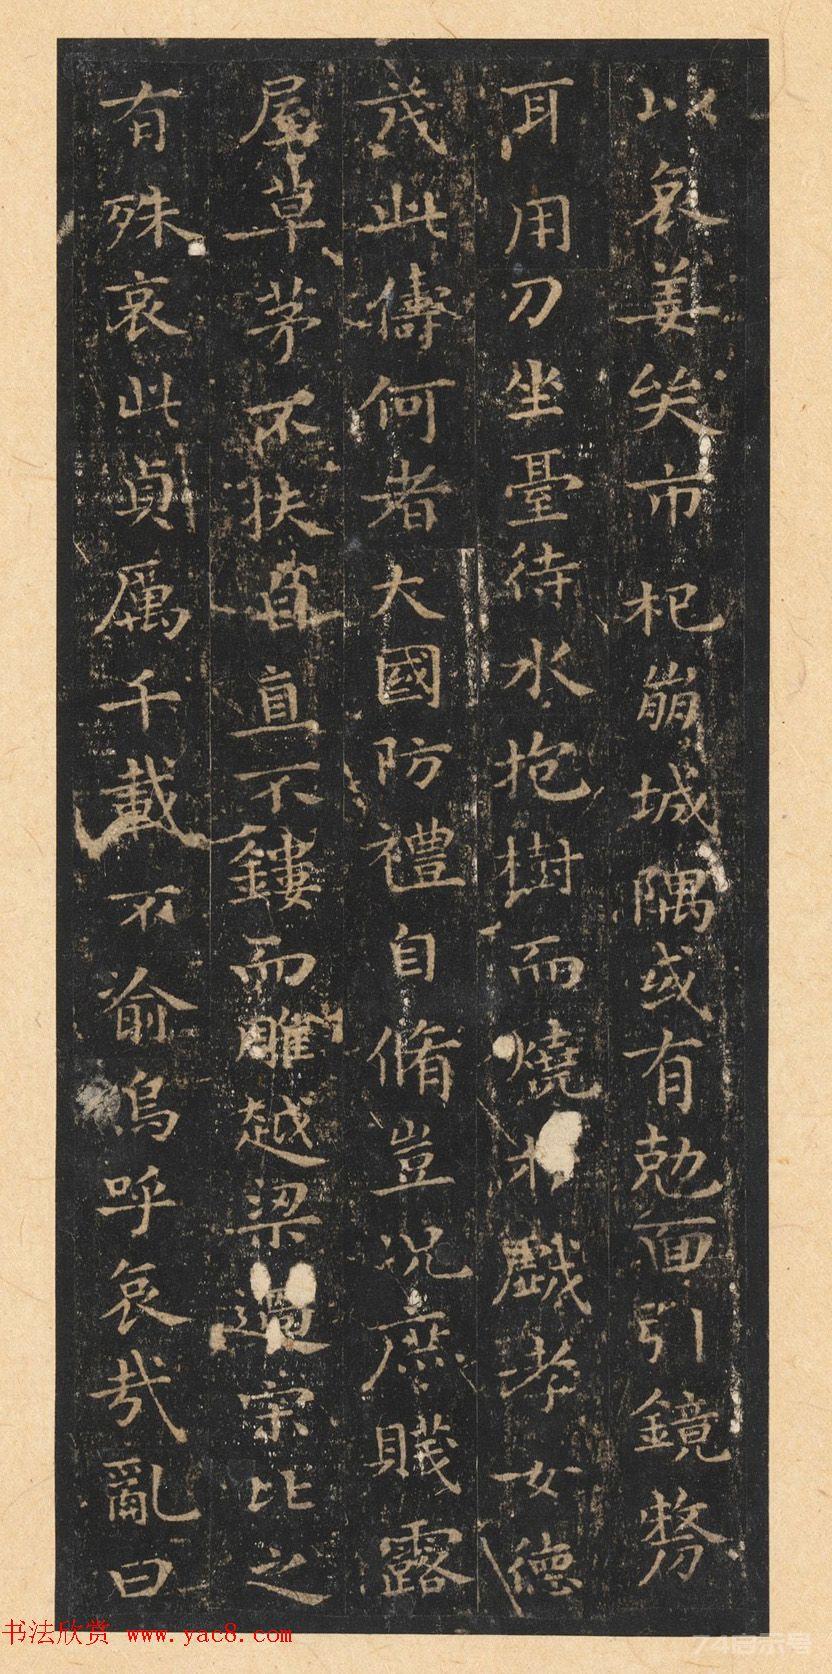 以哀姜矣市杞崩城隅或有勊面引鏡剺
耳用刀坐臺待水抱樹而燒於戲孝女德
茂此儔何者大國防禮自脩豈況庶賤露
屋草茅不扶自直不鏤而雕越梁過宋比之
有殊哀此貞厲千載不渝嗚呼哀哉亂曰
书法欣赏 www.yac8.com